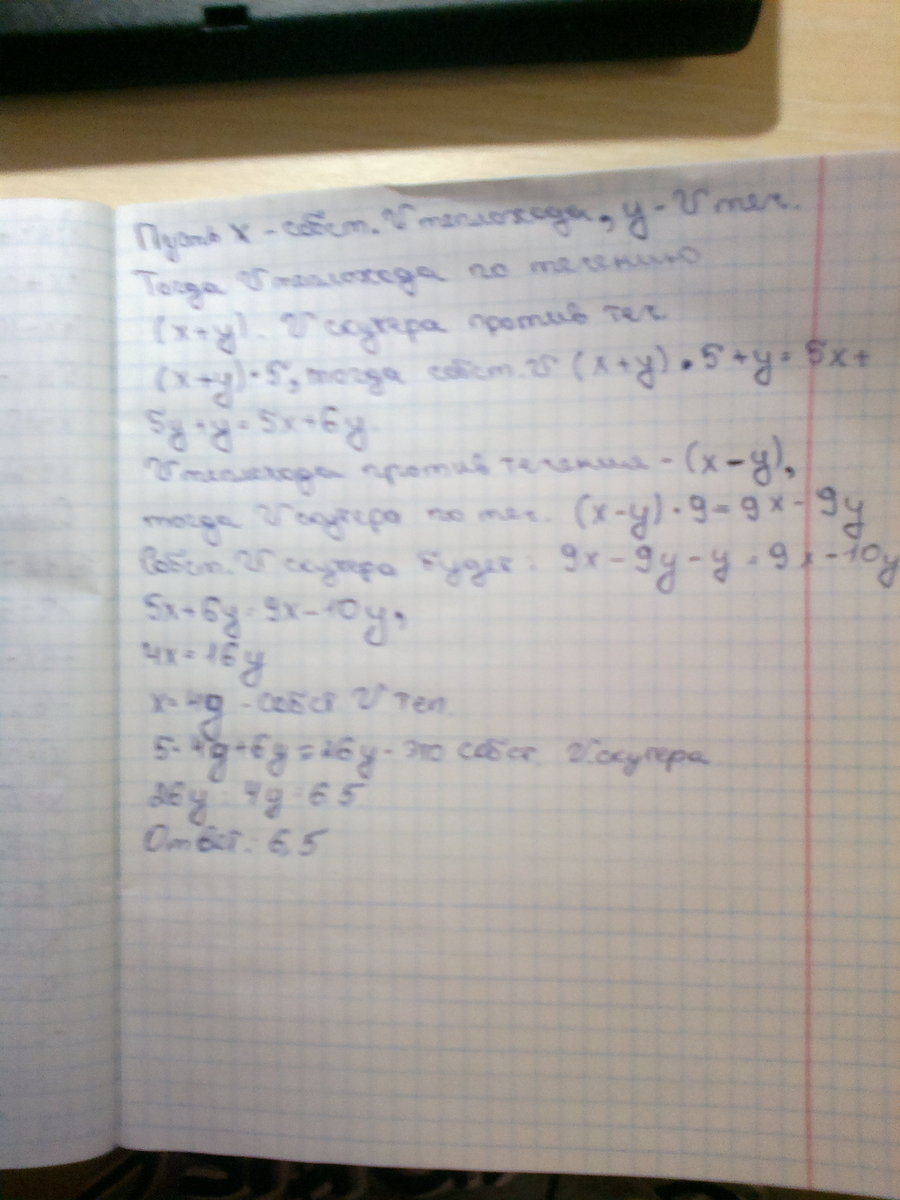 Пусть x - собст. V теплохода, y - V теч.
Тогда V теплохода по течению
(x+y). V скутера против теч
(x+y)·5, тогда собст. V (x+y)·5+y=5x+
5y+y=5x+6y
V теплохода против течения - (x-y),
тогда V скутера по теч. (x-y)·9=9x-9y
Собст. V скутера будет: 9x-9y-y=9x-10y
5x+6y=9x-10y,
4x=16y
x=4y - собст V теп.
5·4y+6y=26y - это собст. V скутера
26y : 4y = 6,5
Ответ: 6,5